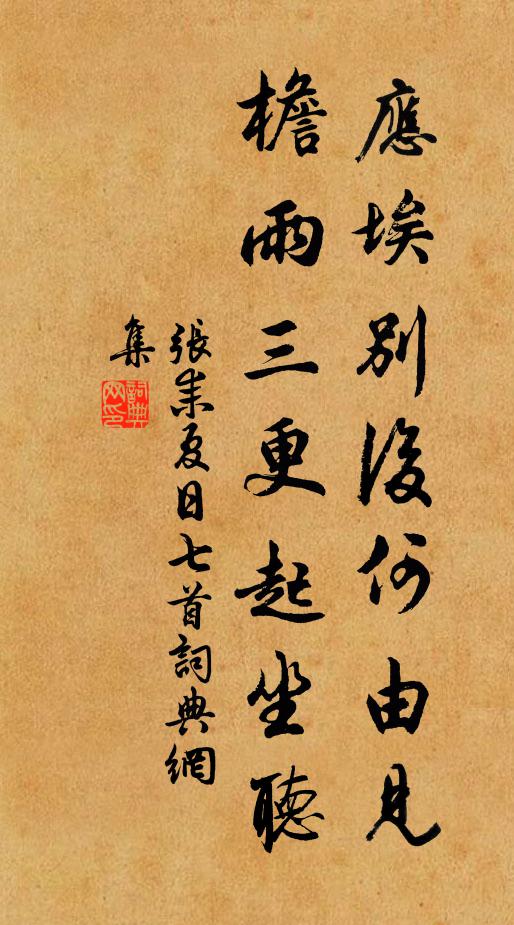 應埃別後何由見
檐雨三更起坐聽
張耒夏日七首詞典網
集
詞典
网印